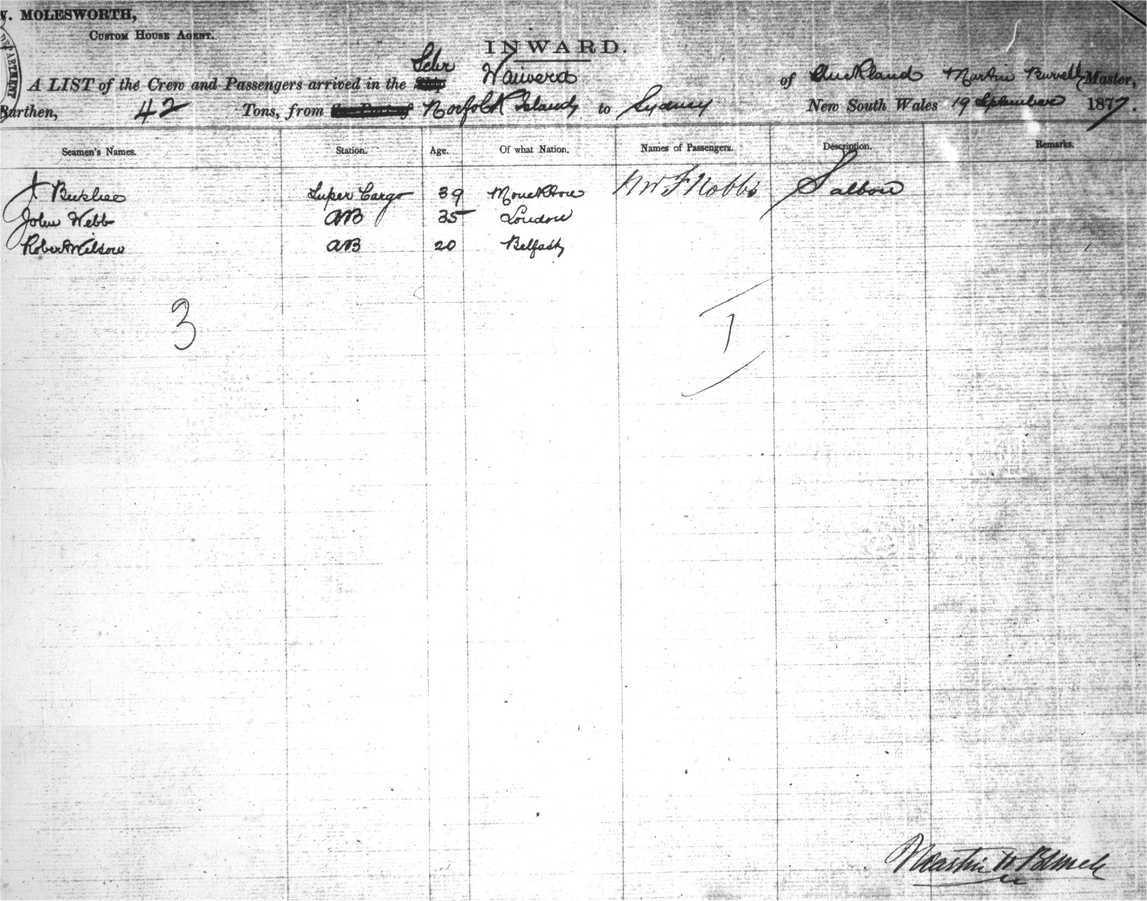 W. MOLESWORTH,
CUSTOM HOUSE AGENT.
INWARD.
A LIST of the Crew and Passengers arrived in the Schr Waiwera of Auckland Martin Master,
Burthen, 42 Tons, from Norfolk Island to Sydney New South Wales 19 September 1877
Seamen's Names. Station. Age. Of what Nation. Names of Passengers. Description. Remarks.
Super Cargo 39 Nobbs Saloon
John Webb AB 35 London
Robert Wilson AB 20 Belfast
3 1
Martin